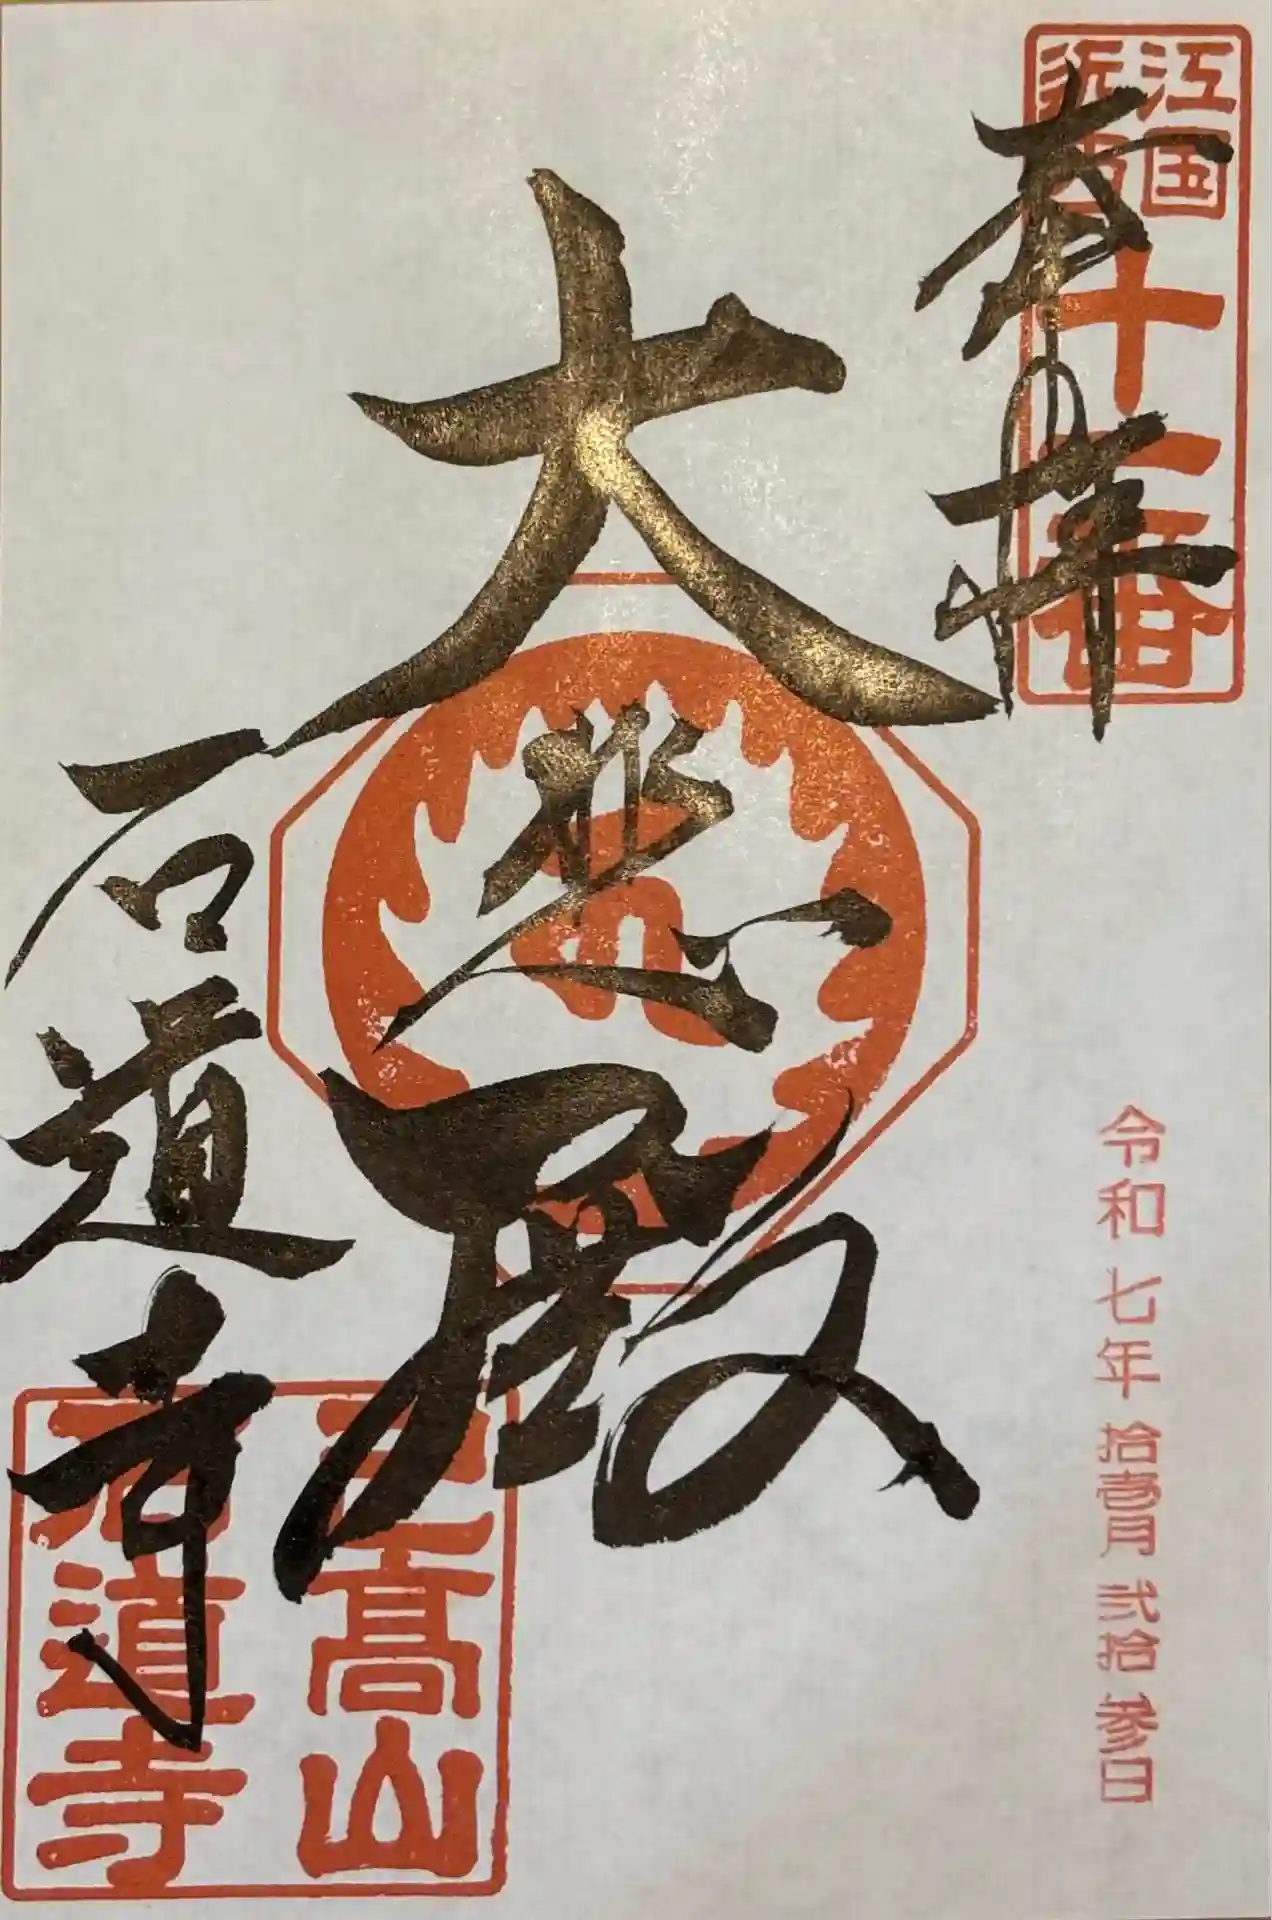 近江
西国
十二番
奉拝
令和七年拾壱月弐拾参日
大悲殿
石道寺
己高山
石道寺